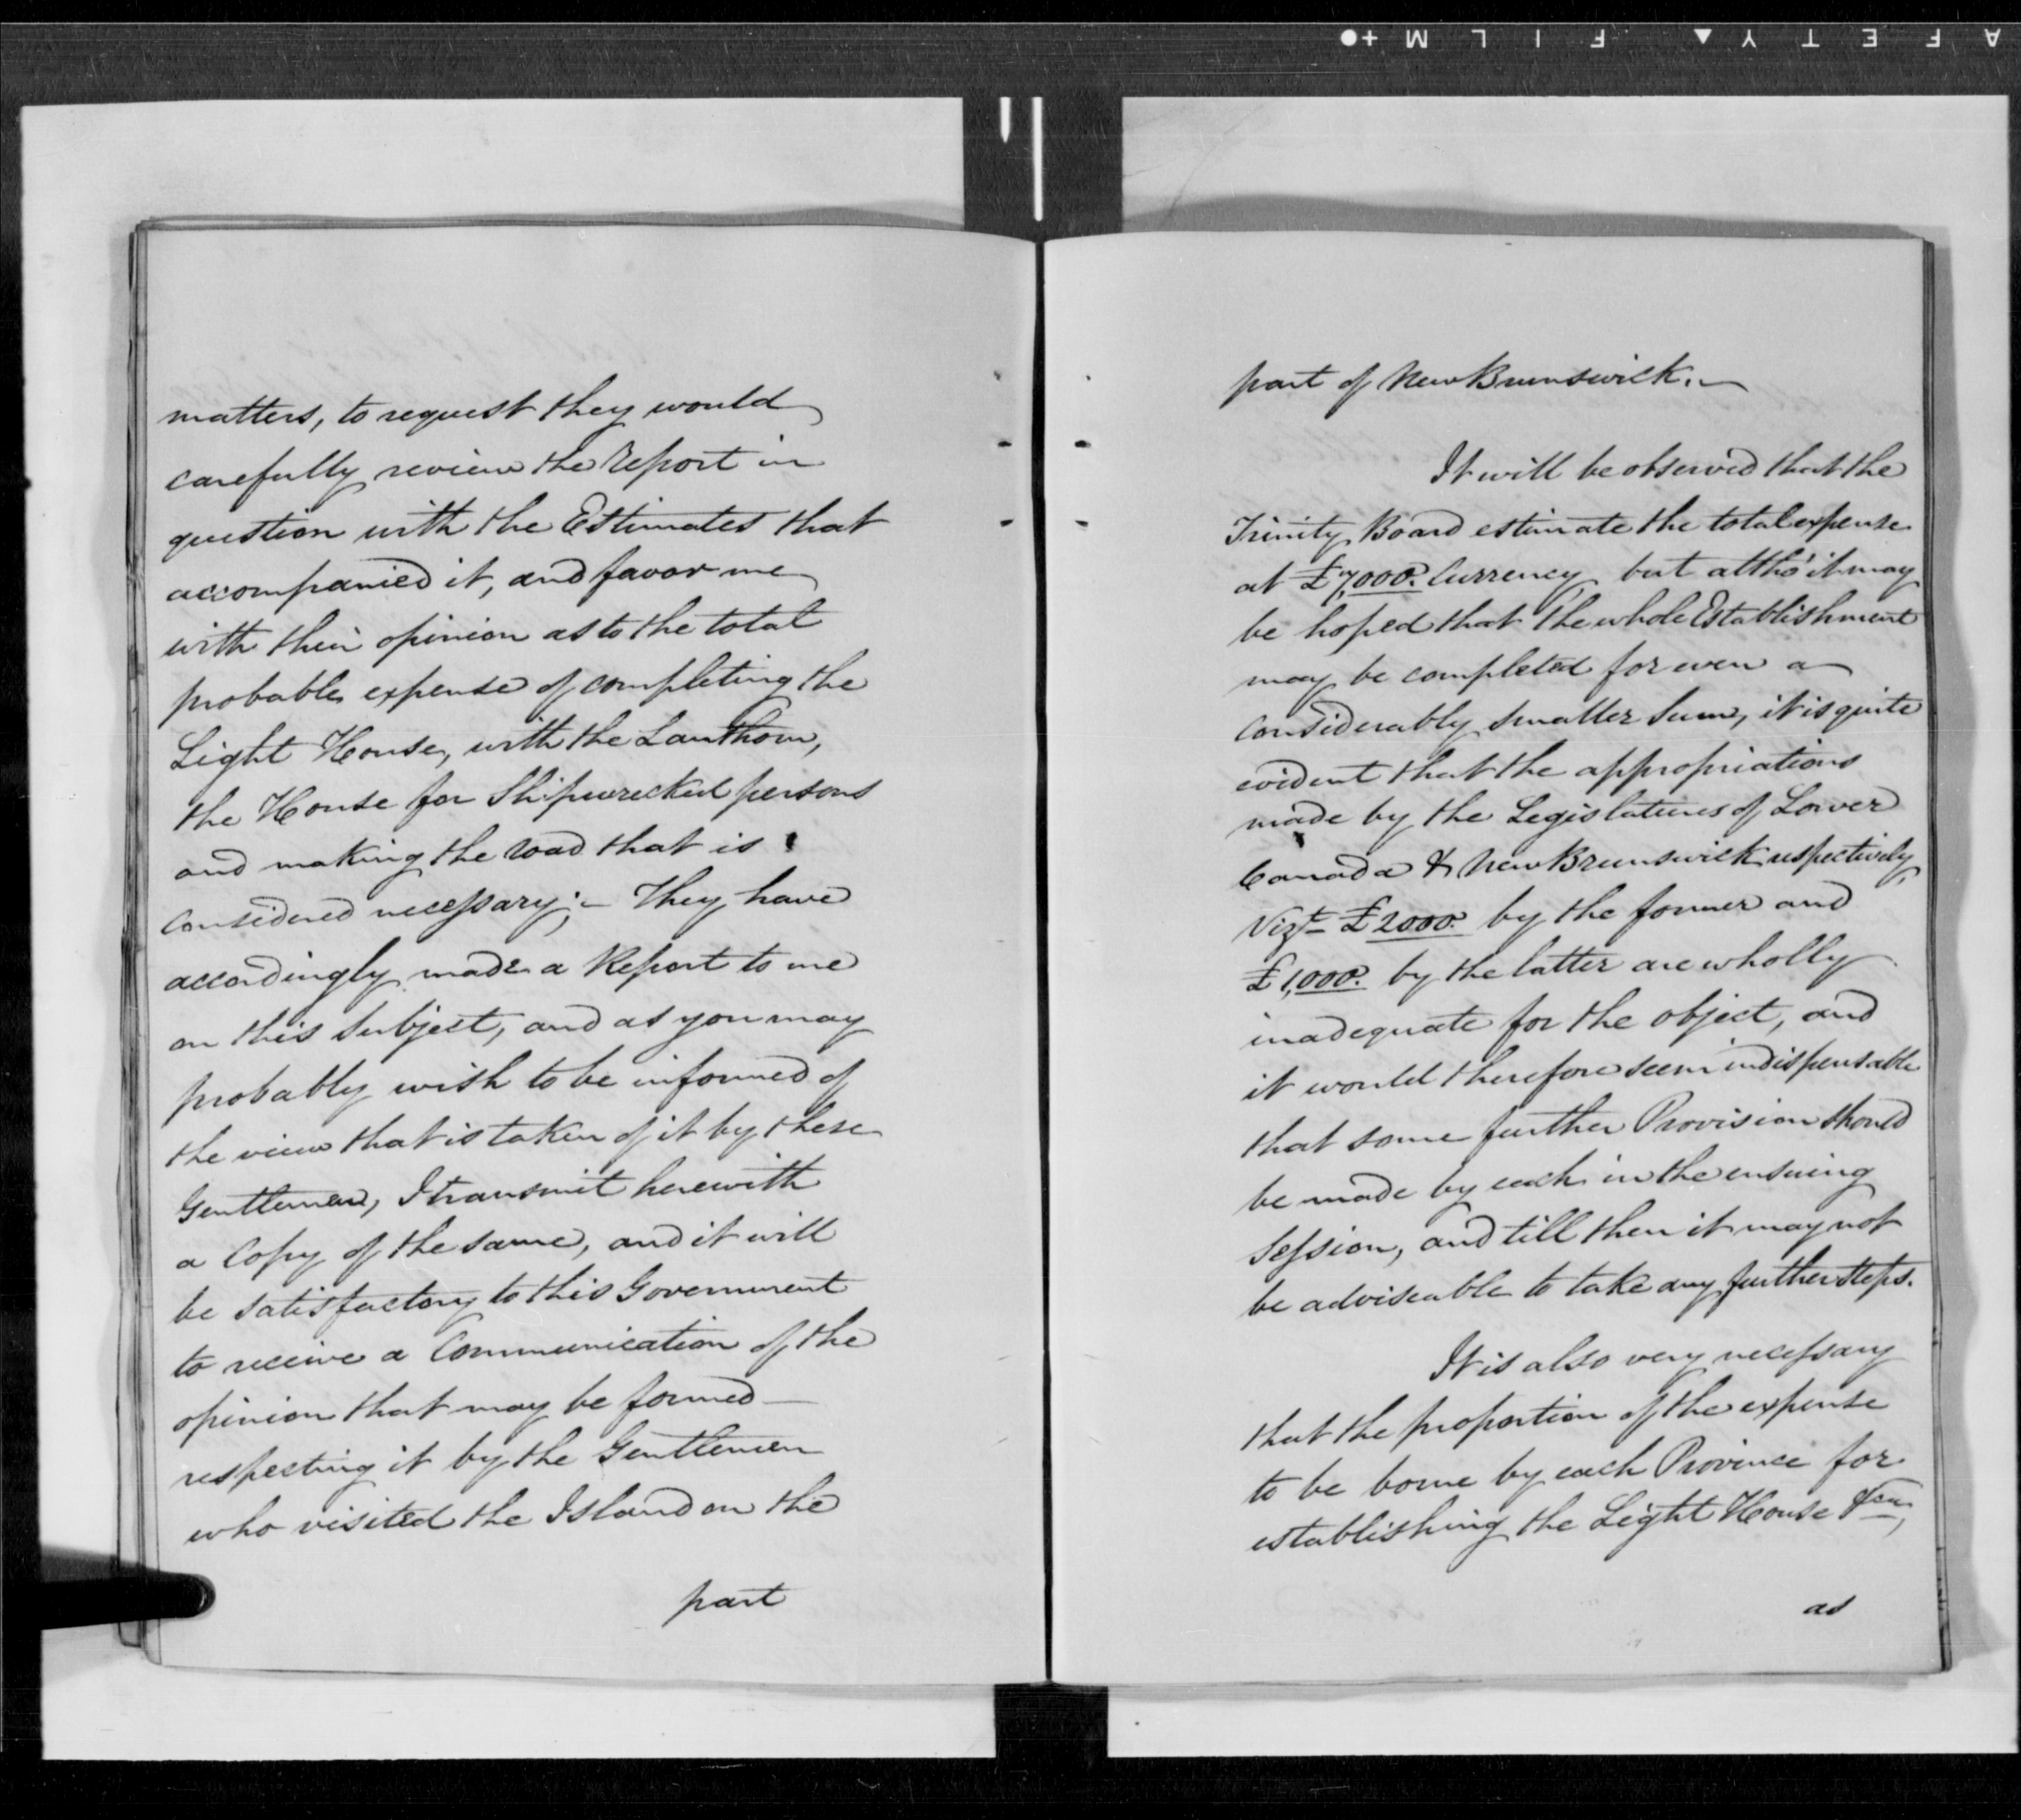 AFETY▲ FILM+●
matters, to request they would
carefully review the Report in
question with the Estimates that
accompanied it, and favor me
with their opinion as to the total
probable expense of completing the
Light House, with the Lanthorn,
the House for Shipwrecked persons
and making the road that is
considered necessary;– They have
accordingly made a Report to me
on this subject, and as you may
probably wish to be informed of
the view that is taken of it by these
Gentlemen, I transmit herewith
a Copy of the same, and it will
be satisfactory to this Government
to receive a Communication of the
opinion that may be formed –
respecting it by the Gentlemen
who visited the Island on the
part
part of New Brunswick.–
It will be observed that the
Trinity Board estimate the total expense
at £7,000. Currency, but altho' it may
be hoped that the whole Establishment
may be completed for even a
considerably smaller sum, it is quite
evident that the appropriations
made by the Legislatures of Lower
Canada & New Brunswick respectively,
Vizt £2000. by the former and
£1,000. by the latter are wholly
inadequate for the object, and
it would therefore seem indispensable
that some further Provision should
be made by each in the ensuing
Session, and till then it may not
be adviseable to take any further steps.
It is also very necessary
that the proportion of the expense
to be borne by each Province for
establishing the Light House &ca,
as